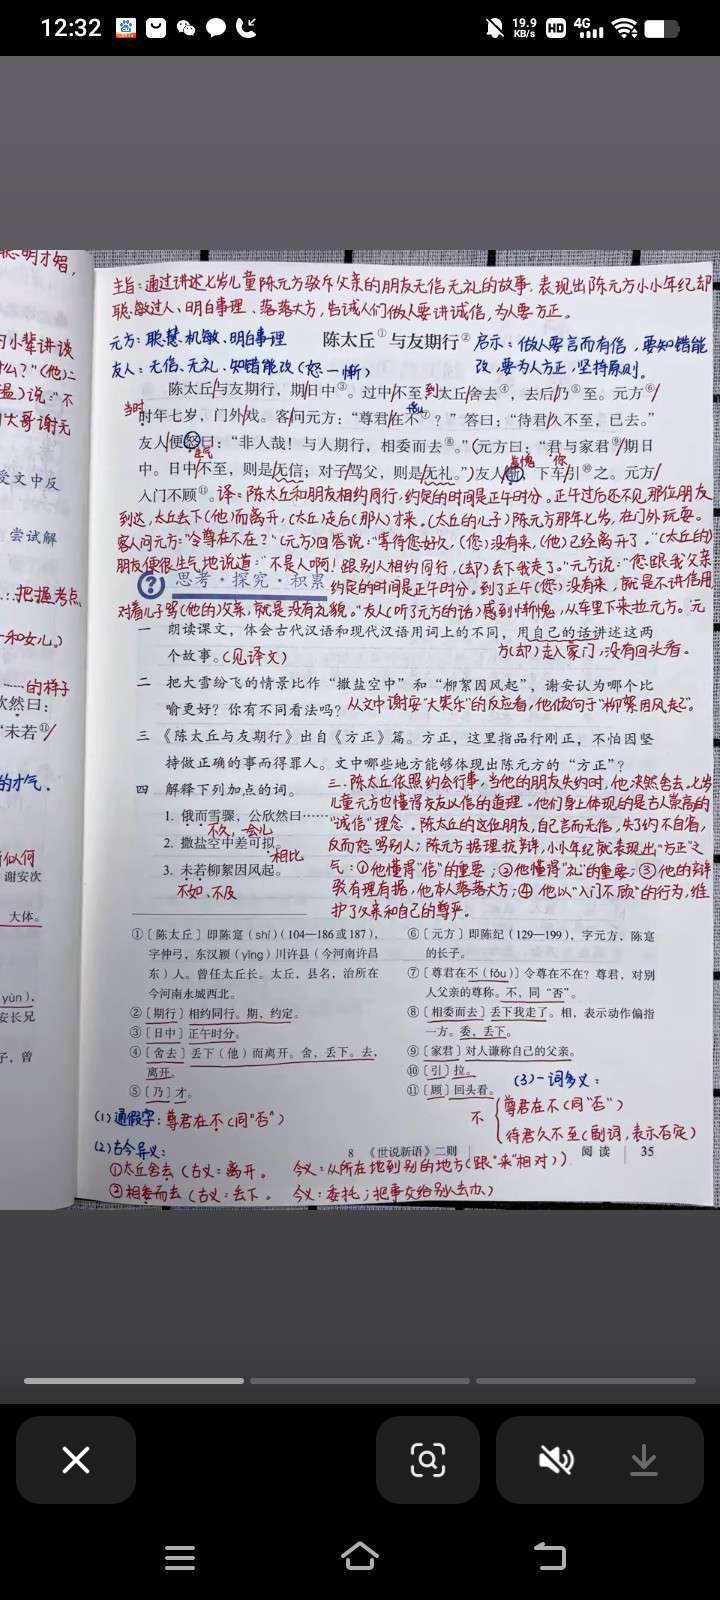 12:32
19.9
KB/s
HD
4G
聪明才智，
主旨：通过讲述七岁儿童陈元方驳斥父亲的朋友无信无礼的故事，表现出陈元方小小年纪却
聪敏过人、明白事理、落落大方，告诫人们做人要讲诚信，为人要方正。
元方：聪慧、机敏、明白事理
陈太丘①与友期行②
启示：做人要言而有信，要知错能
改，要为人方正，坚持原则。
友人：无信、无礼、知错能改（怒一惭）
小辈讲谈
陈太丘/与友期行，期/日中③。过中/不至/太丘/舍去④，去后/乃⑤至。元方⑥/
到
当时
时年七岁，门外/戏。客/问元方：“尊君/在不⑦？”答曰：“待君/久不至，已去。”
友人/便怒曰：“非人哉！与人期行，相委而去⑧。”（元方曰：“君与家君⑨/期日
生气
中。日中/不至，则是/无信；对子/骂父，则是/无礼。”）友人/惭，下车/引⑩之。元方/
惭愧
入门不顾⑪。
译：陈太丘和朋友相约同行，约定的时间是正午时分。正午过后还不见那位朋友
到达，太丘丢下（他）而离开，（太丘）走后（那人）才来。（太丘的儿子）陈元方那年七岁，在门外玩耍。
客人问元方：“令尊在不在？”（元方）回答说：“等待您好久，（您）没有来，（他）已经离开了。”（太丘的）
朋友便很生气地说道：“不是人啊！跟别人相约同行，（却）丢下我走了。”元方说：“您跟我父亲
思考·探究·积累
约定的时间是正午时分。到了正午（您）没有来，就是不讲信用
对着儿子骂（他的）父亲，就是没有礼貌。”友人（听了元方的话）感到惭愧，从车里下来拉元方。元
一 朗读课文，体会古代汉语和现代汉语用词上的不同，用自己的话讲述这两
个故事。（见译文）
方（却）走入家门，没有回头看。
二 把大雪纷飞的情景比作“撒盐空中”和“柳絮因风起”，谢安认为哪个比
喻更好？你有不同看法吗？
从文中谢安“大笑乐”的反应看，他倾向于“柳絮因风起”。
三 《陈太丘与友期行》出自《方正》篇。方正，这里指品行刚正，不怕因坚
持做正确的事而得罪人。文中哪些地方能够体现出陈元方的“方正”？
四 解释下列加点的词。
1. 俄而雪骤，公欣然曰……
不久，一会儿
2. 撒盐空中差可拟。
相比
3. 未若柳絮因风起。
不如、不及
三、陈太丘依照约会行事，当他的朋友失约时，他决然舍去。七岁
儿童元方也懂得交友以信的道理。他们身上体现的是古人崇尚的
“诚信”理念。陈太丘的这位朋友，自己言而无信，失了约不自省，
反而怒骂别人；陈元方据理抗争，小小年纪就表现出“方正”之
气：①他懂得“信”的重要；②他懂得“礼”的重要；③他的辩
驳有理有据，他本人落落大方；④他以“入门不顾”的行为，维
护了父亲和自己的尊严。
①〔陈太丘〕即陈寔（shí）（104—186或187），
字仲弓，东汉颍（yǐng）川许县（今河南许昌
东）人。曾任太丘长。太丘，县名，治所在
今河南永城西北。
②〔期行〕相约同行。期，约定。
③〔日中〕正午时分。
④〔舍去〕丢下（他）而离开。舍，丢下。去，
离开。
⑤〔乃〕才。
⑥〔元方〕即陈纪（129—199），字元方，陈寔
的长子。
⑦〔尊君在不（fǒu）〕令尊在不在？尊君，对别
人父亲的尊称。不，同“否”。
⑧〔相委而去〕丢下我走了。相，表示动作偏指
一方。委，丢下。
⑨〔家君〕对人谦称自己的父亲。
⑩〔引〕拉。
⑪〔顾〕回头看。
(3)一词多义：
不
尊君在不（同“否”）
待君久不至（副词，表示否定）
(1)通假字：尊君在不（同“否”）
(2)古今异义：
8 《世说新语》二则
阅读
35
①太丘舍去（古义：离开。 今义：从所在地到别的地方（跟“来”相对））
②相委而去（古义：丢下。 今义：委托；把事交给别人去办）